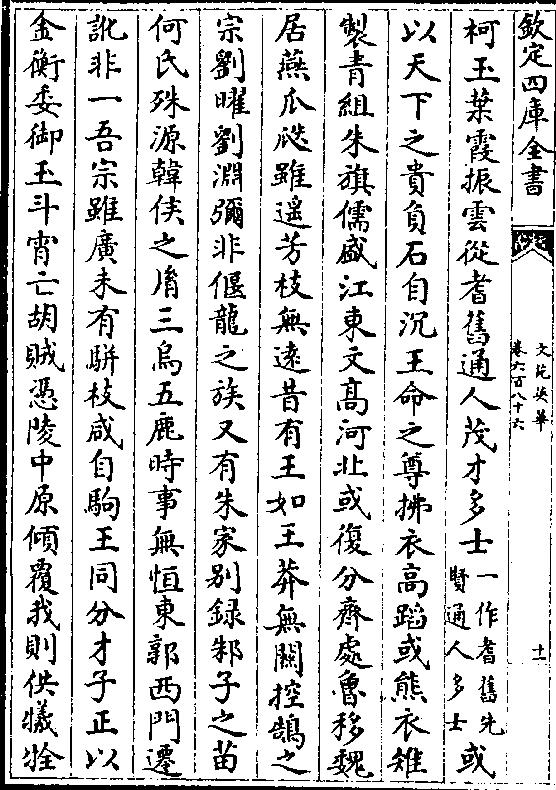 欽定四庫全書
文苑英華
卷六百八十六
十一
柯玉葉霞振雲從耆舊通人茂才多士一作耆舊先賢通人多士或
以天下之貴負石自沉王命之尊拂衣高蹈或熊衣雉
製青組朱旗儒盛江東文髙河北或復分齊處魯移魏
居燕瓜瓞雖遥芳枝無逺昔有王如王莽無關控鵠之
宗劉曜劉淵彌非偃龍之族又有朱家别録邾子之苗
何氏殊源韓侯之𦙍三烏五鹿時事無恒東郭西門遷
訛非一吾宗雖廣未有駢枝咸自駒王同分才子正以
金衡委御玉斗宵亡胡賊憑陵中原傾覆我則供犧牷